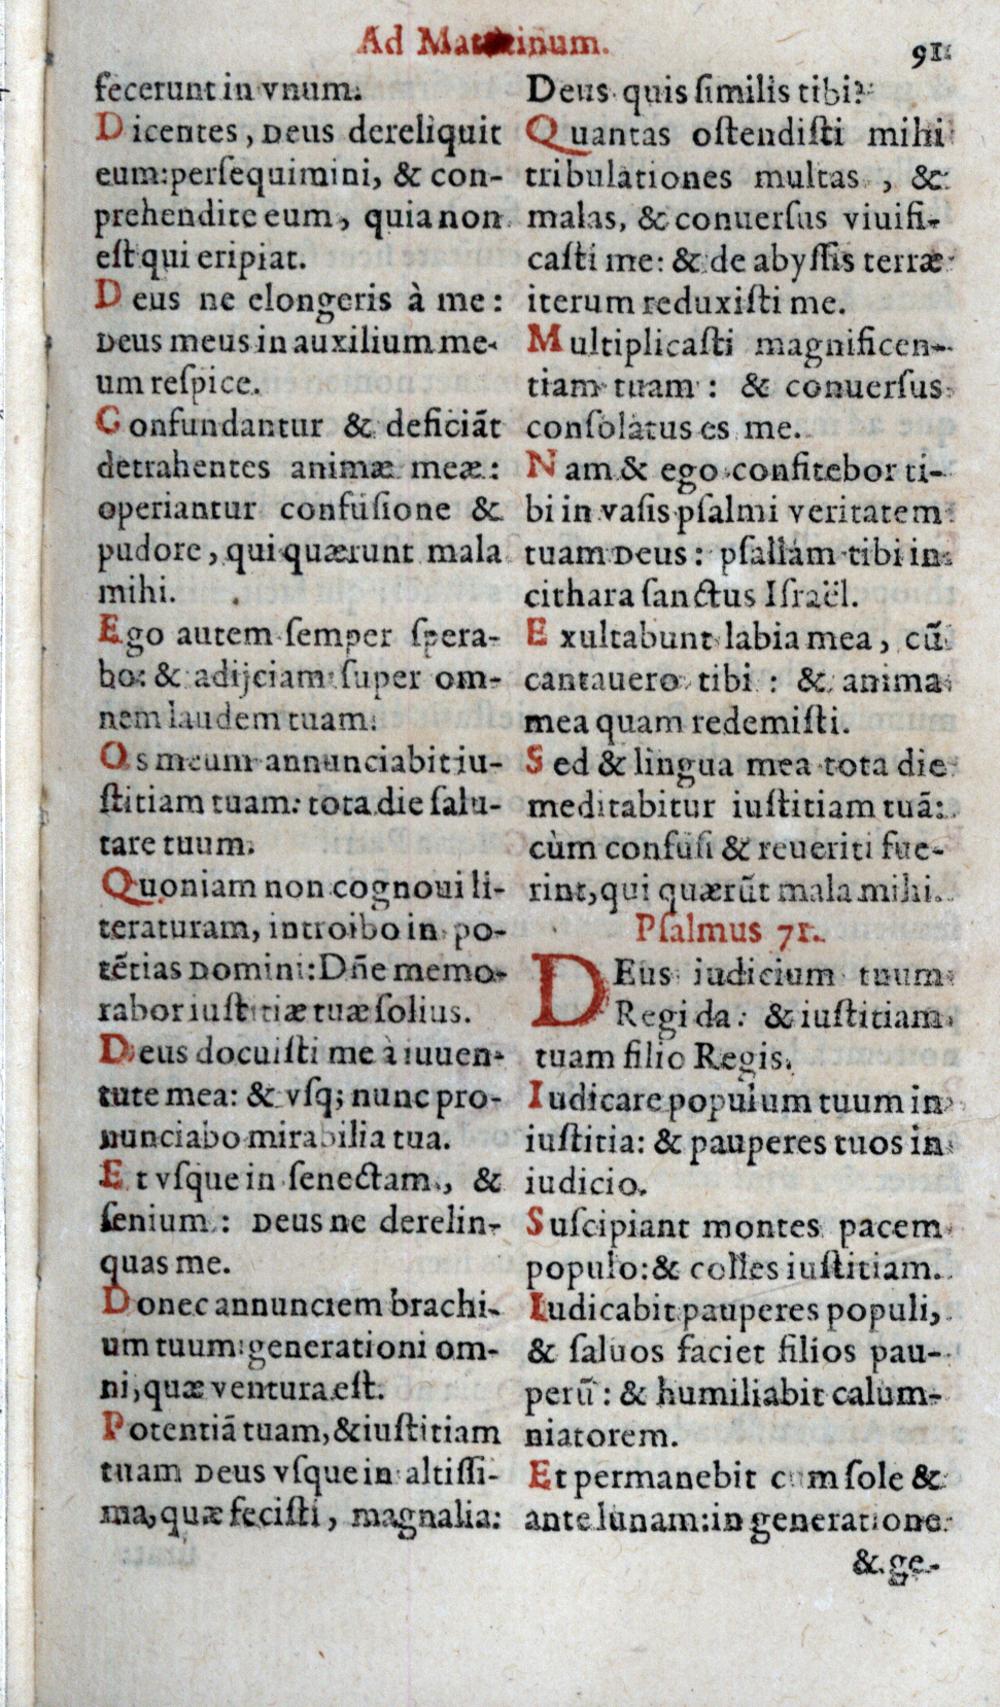 Ad Matutinum.
91
fecerunt in vnum.
Dicentes, Deus dereliquit
eum: perſequimini, & con-
prehendite eum, quia non
eſt qui eripiat.
Deus ne elongeris à me:
Deus meus in auxilium me-
um reſpice.
Confundantur & deficiãt
detrahentes animæ meæ:
operiantur confuſione &
pudore, qui quærunt mala
mihi.
Ego autem ſemper ſpera-
bo: & adijciam ſuper om-
nem laudem tuam.
Os meum annunciabit iu-
ſtitiam tuam: tota die ſalu-
tare tuum.
Quoniam non cognoui li-
teraturam, introibo in po-
tẽtias Domini: Dñe memo-
rabor iuſtitiæ tuæ ſolius.
Deus docuiſti me à iuuen-
tute mea: & vſq; nunc pro-
nunciabo mirabilia tua.
Et vſque in ſenectam, &
ſenium: Deus ne derelin-
quas me.
Donec annunciem brachi-
um tuum: generationi om-
ni, quæ ventura eſt.
Potentiã tuam, & iuſtitiam
tuam Deus vſque in altiſſi-
ma, quæ feciſti, magnalia:
Deus quis ſimilis tibi?
Quantas oſtendiſti mihi
tribulationes multas, &
malas, & conuerſus viuifi-
caſti me: & de abyſſis terræ
iterum reduxiſti me.
Multiplicaſti magnificen-
tiam tuam: & conuerſus
conſolatus es me.
Nam & ego confitebor ti-
bi in vaſis pſalmi veritatem
tuam Deus: pſallam tibi in
cithara ſanctus Iſraël.
Exultabunt labia mea, cũ
cantauero tibi: & anima
mea quam redemiſti.
Sed & lingua mea tota die
meditabitur iuſtitiam tuã:
cùm confuſi & reueriti fue-
rint, qui quærũt mala mihi.
Pſalmus 71.
DEus iudicium tuum
Regi da: & iuſtitiam
tuam filio Regis.
Iudicare populum tuum in
iuſtitia: & pauperes tuos in
iudicio.
Suſcipiant montes pacem
populo: & colles iuſtitiam.
Iudicabit pauperes populi,
& ſaluos faciet filios pau-
perũ: & humiliabit calum-
niatorem.
Et permanebit cum ſole &
ante lunam: in generatione
& ge-